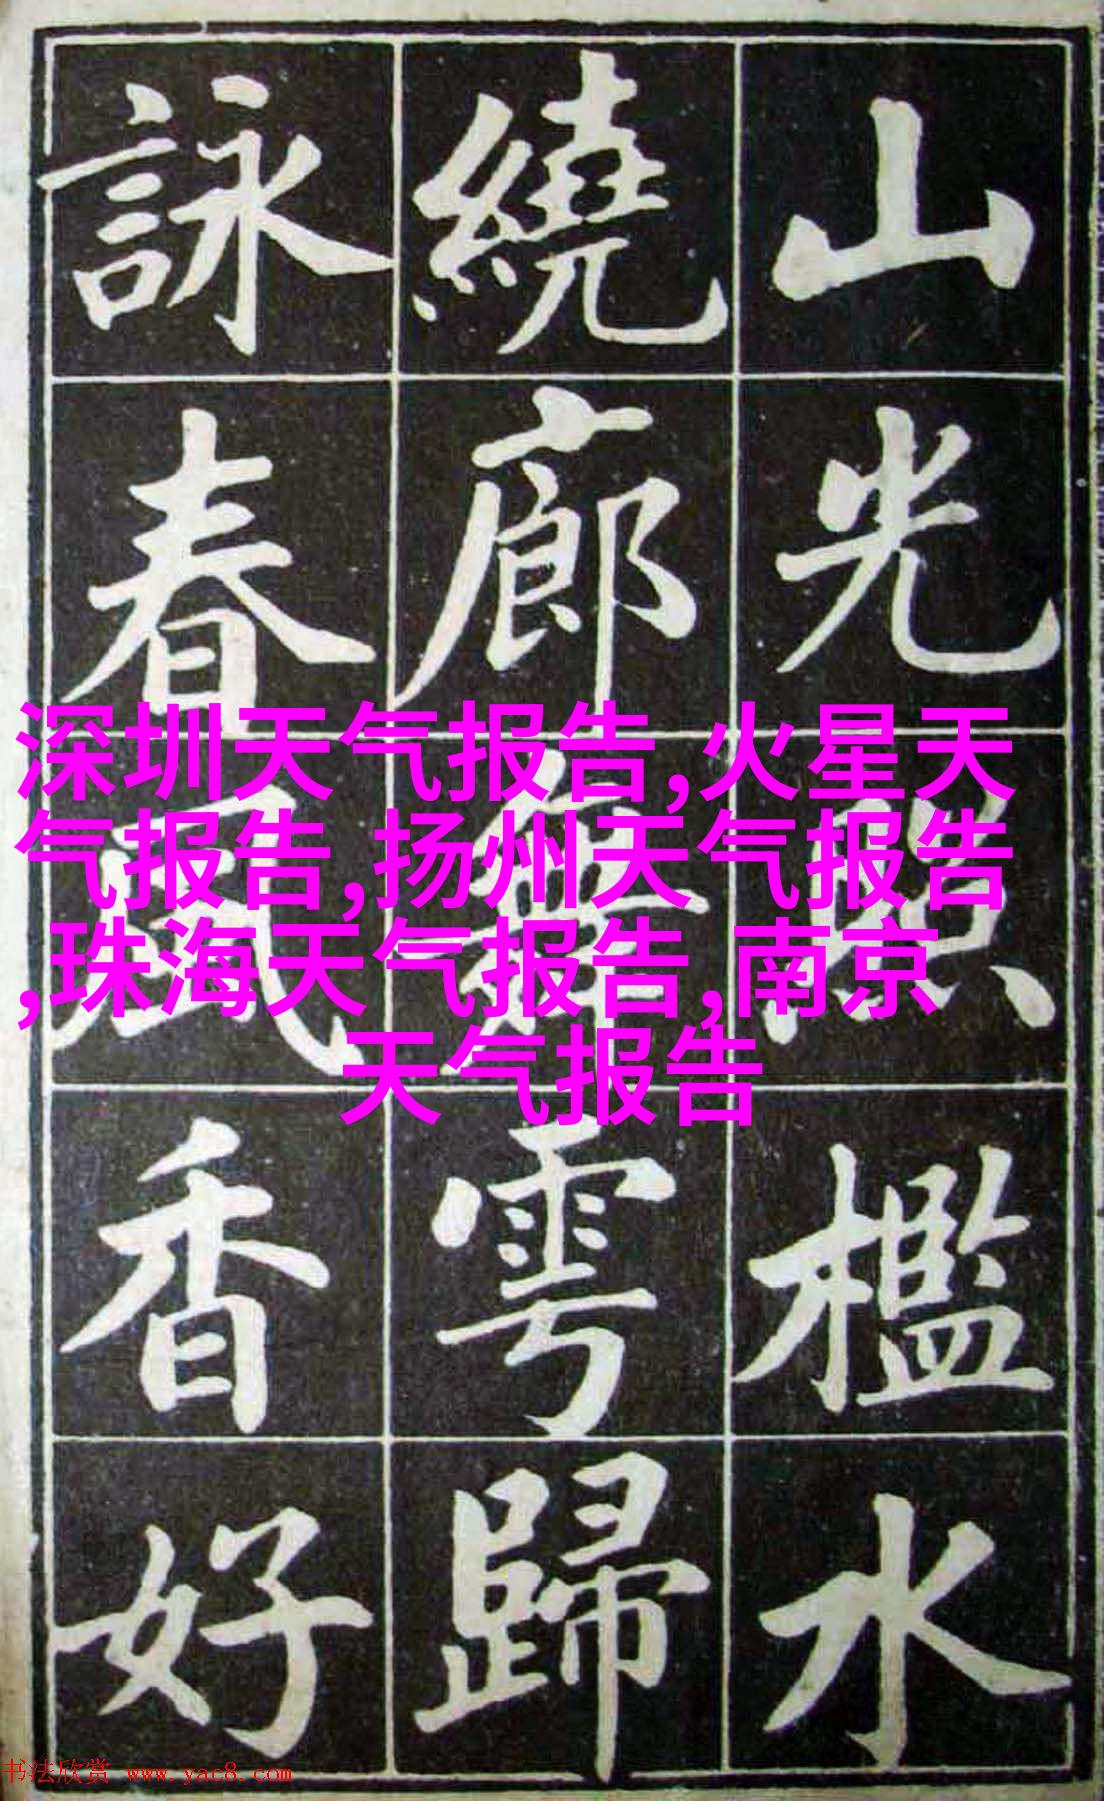 山光照檻水
繞廊舞雩歸
詠春風香好
深圳天气报告,火星天
气报告,扬州天气报告
,珠海天气报告,南京
天气报告
书法欣赏 www.yac8.com